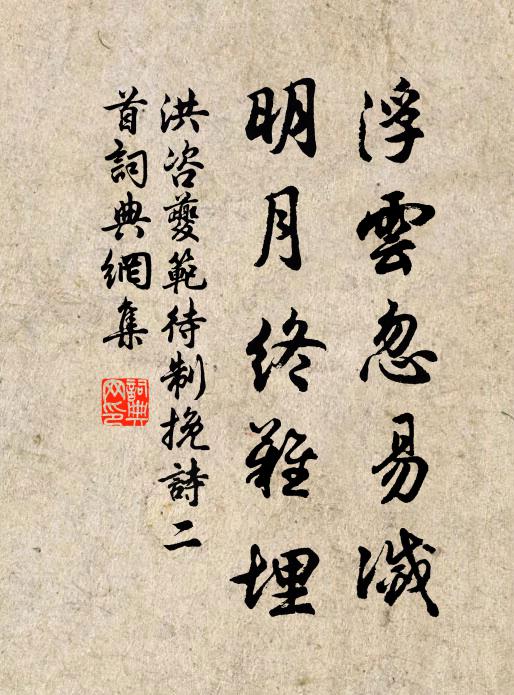 浮雲忽易滅
明月終難埋
洪咨夔範待制挽詩二
首詞典網集
詞典
网印